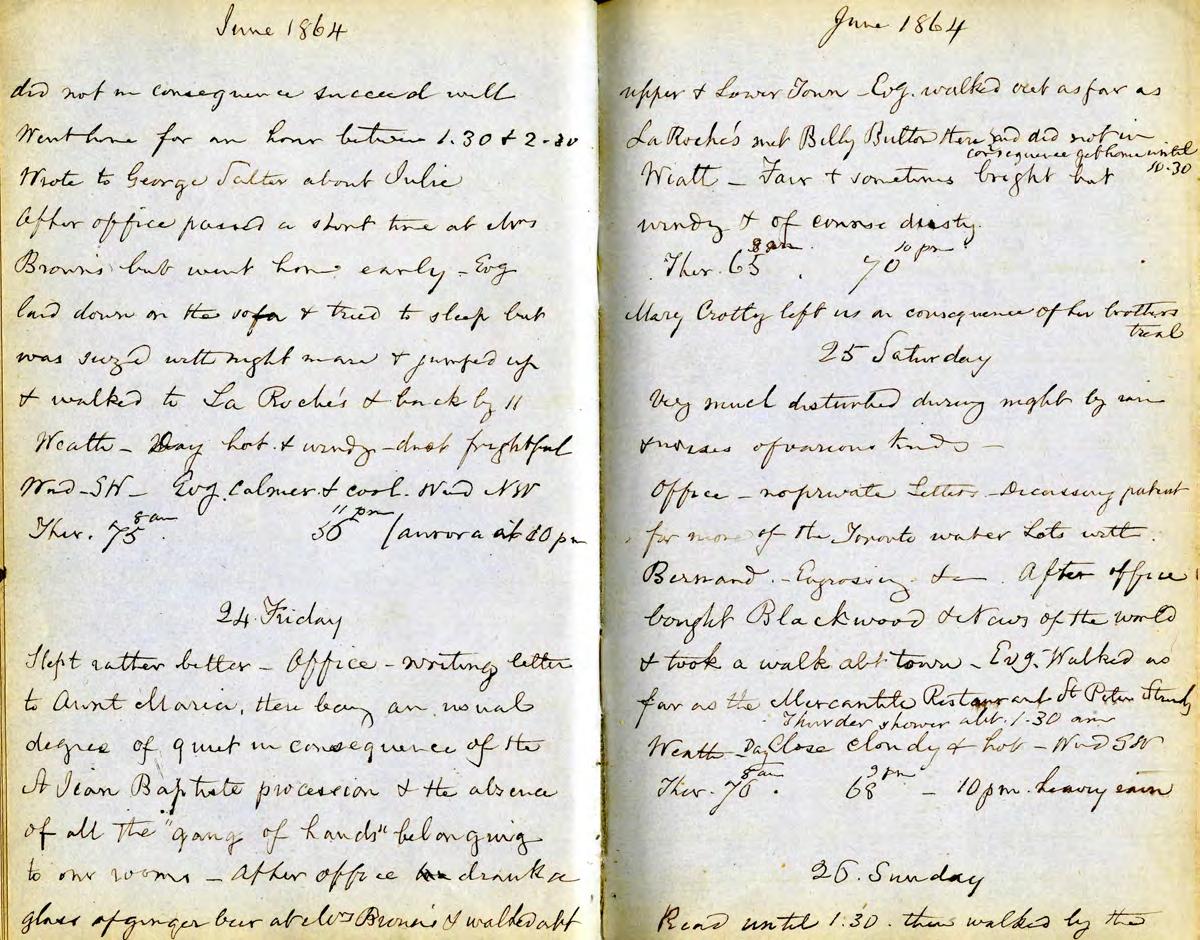 June 1864
did not in consequence succeed well
Went home for an hour between 1.30 & 2-30
Wrote to George Salter about Julie
After office passed a short time at Mrs
Browns but went home early - Evg
laid down on the sofa & tried to sleep but
was seized with night mare & jumped up
& walked to La Roché's & back by 11
Weath - Day hot & windy - dust frightful
Wnd - SW - Evg. calmer & cool. Wnd NW
8 am 11 pm
Ther. 75 56 (aurora at 10 pm
24 Friday
Slept rather better - Office - writing letter
to Aunt Maria, there being an usual
degree of quiet in consequence of the
St Jean Baptiste procession & the absence
of all the "gang of hands" belonging
to our rooms - After office drank a
glass of ginger beer at Mrs Brown's & walked abt
June 1864
upper & Lower Town - Evg. walked out as far as
La Roché's met Billy Button there and did not in
consequence get home until
10.30
Weath - Fair & sometimes bright but
windy & of course dusty.
8 am 10 pm
Ther. 65 70
Mary Crotty left us in consequence of her brothers
trial
25 Saturday
Very much disturbed during night by rain
& noises of various kinds -
Office - no private Letters - Discussing patent
for more of the Toronto water Lots with
Bernard. - Engrossing &c. After office
bought Blackwood & News of the world
& took a walk abt town - Evg. Walked as
far as the Mercantile Restaurant St Peter Street
Thunder shower abt. 1.30 am
Weath - Day Close cloudy & hot - Wnd SW
8 am 9 pm
Ther. 70. 68 - 10 pm. heavy rain
26. Sunday
Read until 1.30. then walked by the